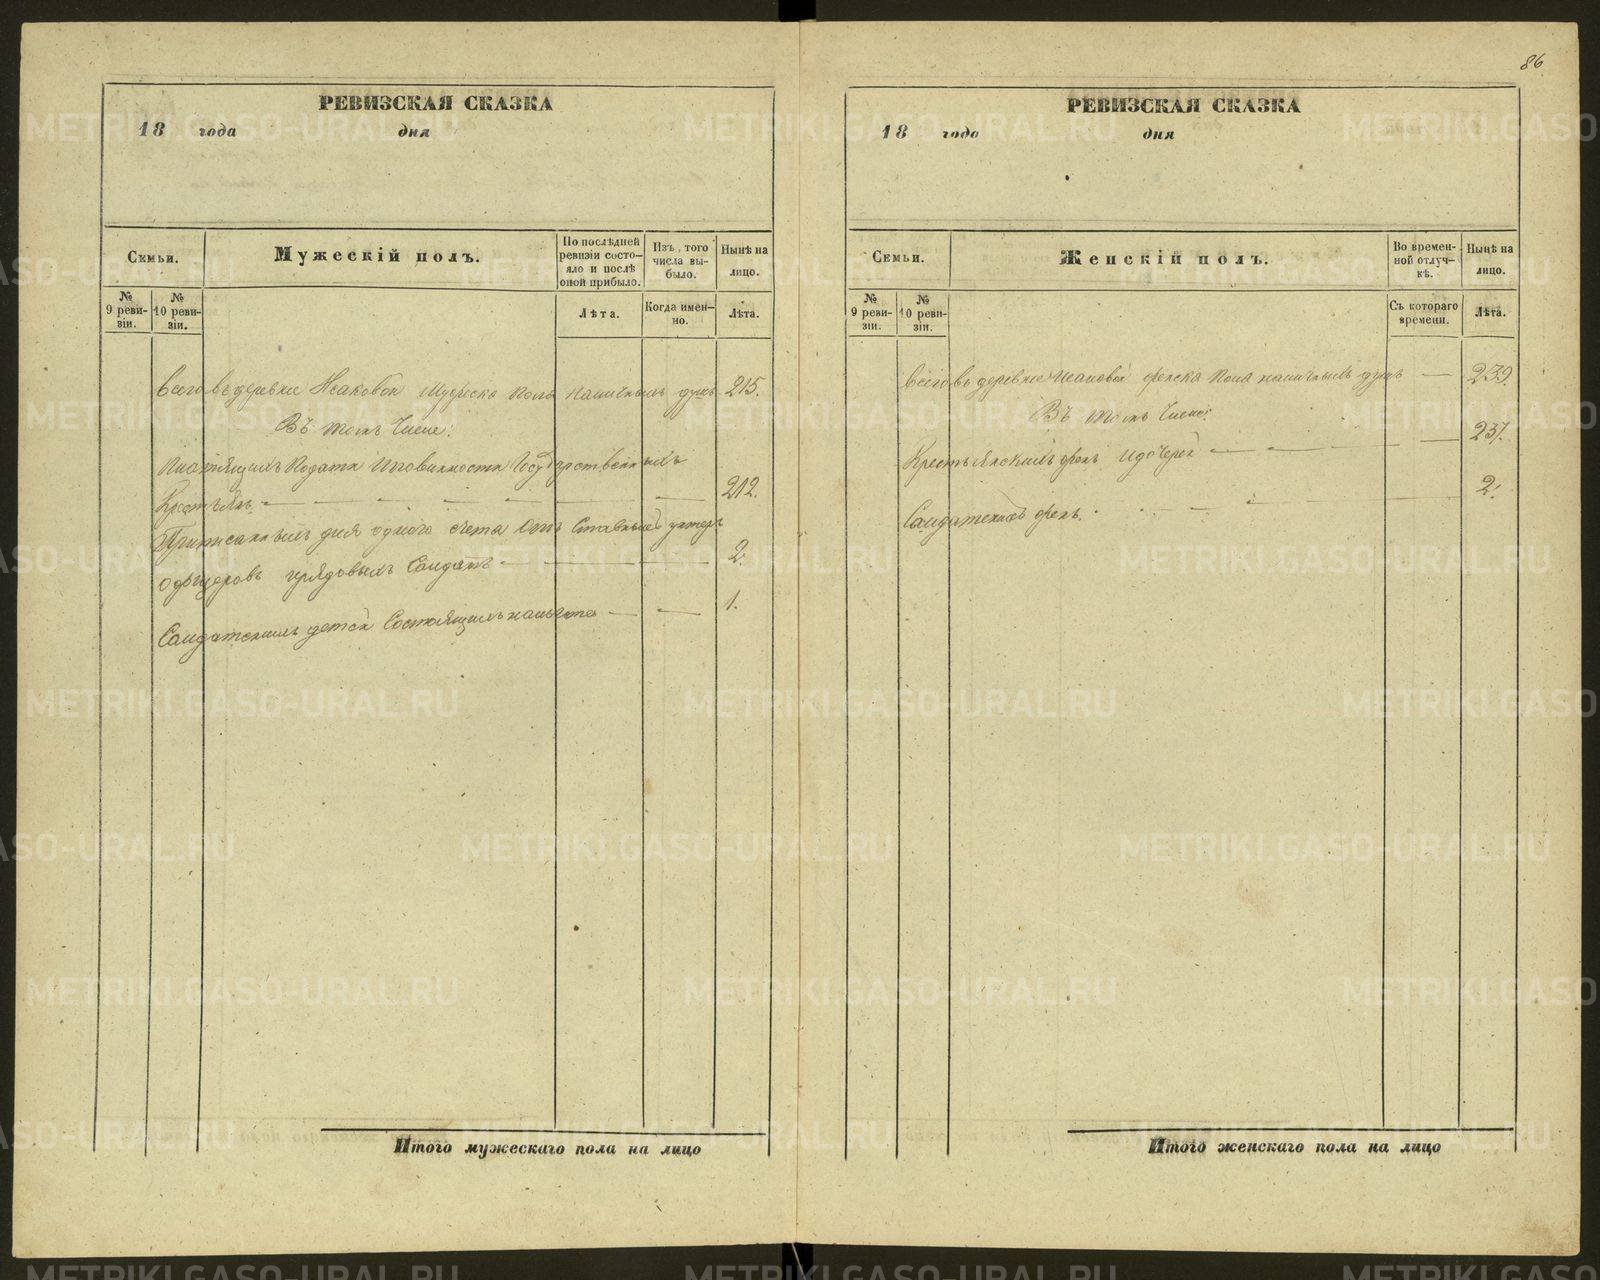 86
РЕВИЗСКАЯ СКАЗКА
18 года дня
Семьи.
Мужескій полъ.
По послѣдней ревизіи состо-
яло и послѣ оной прибыло.
Изъ того числа вы-
было.
Нынѣ на лицо.
№ 9 реви-
зіи.
№ 10 реви-
зіи.
Лѣта.
Когда имен-
но.
Лѣта.
Всего въ деревне Исаковой Мужеска пола наличныхъ душъ 215.
Въ томъ числе:
Платящихъ подати и повинности Государственныхъ
Крестьянъ 212.
Приписанныхъ для одного счета отъ ставныхъ унтеръ
офицеровъ и рядовыхъ Солдатъ 2.
Солдатскихъ детей Состоящихъ на льготе 1.
Итого мужескаго пола на лицо
РЕВИЗСКАЯ СКАЗКА
18 года дня
Семьи.
Женскій полъ.
Во времен-
ной отлуч-
кѣ.
Нынѣ на лицо.
№ 9 реви-
зіи.
№ 10 реви-
зіи.
Съ котораго времени.
Лѣта.
Всего въ деревне Исаковой женска пола наличныхъ душъ 239.
Въ томъ числе:
Крестьянскихъ женъ и дочерей 237.
Солдатскихъ женъ. 2.
Итого женскаго пола на лицо
METRIKI.GASO-URAL.RU